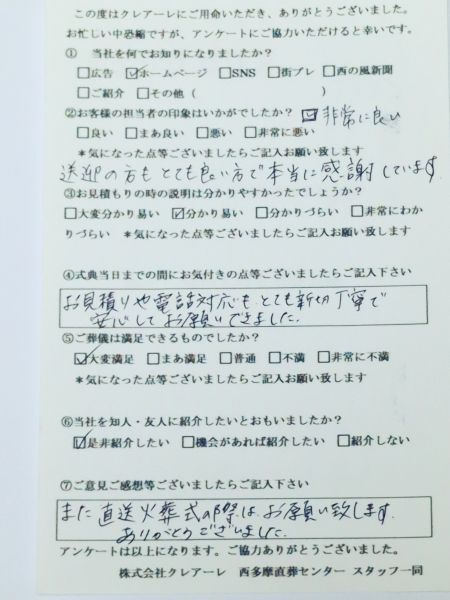 この度はクレアーレにご用命いただき、ありがとうございました。
お忙しい中恐縮ですが、アンケートにご協力いただけると幸いです。
① 当社を何でお知りになりましたか？
□広告 ☑ホームページ □SNS □街プレ □西の風新聞
□ご紹介 □その他（ ）
②お客様の担当者の印象はいかがでしたか？ ☑非常に良い
□良い □まあ良い □悪い □非常に悪い
＊気になった点等ございましたらご記入お願い致します
送迎の方もとても良い方で本当に感謝しています。
③お見積もりの時の説明は分かりやすかったでしょうか？
□大変分かり易い ☑分かり易い □分かりづらい □非常にわか
りづらい ＊気になった点等ございましたらご記入お願い致します
④式典当日までの間にお気付きの点等ございましたらご記入下さい
お見積りや電話対応もとても親切丁寧で
安心してお願いできました。
⑤ご葬儀は満足できるものでしたか？
☑大変満足 □まあ満足 □普通 □不満 □非常に不満
＊気になった点等ございましたらご記入お願い致します
⑥当社を知人・友人に紹介したいとおもいましたか？
☑是非紹介したい □機会があれば紹介したい □紹介しない
⑦ご意見ご感想等ございましたらご記入下さい
また直送火葬式の際はお願い致します。
ありがとうございました。
アンケートは以上になります。ご協力ありがとうございました。
株式会社クレアーレ 西多摩直葬センター スタッフ一同